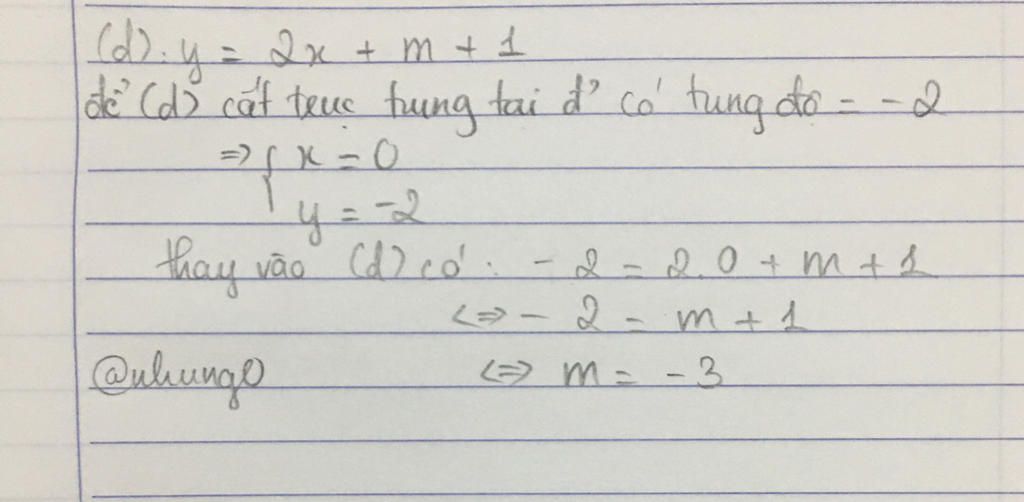 (d): y = 2x + m + 1
để (d) cắt trục tung tại đ' có tung độ = -2
=> { x = 0
y = -2
thay vào (d) có: -2 = 2.0 + m + 1
<=> -2 = m + 1
@nhung0 <=> m = -3